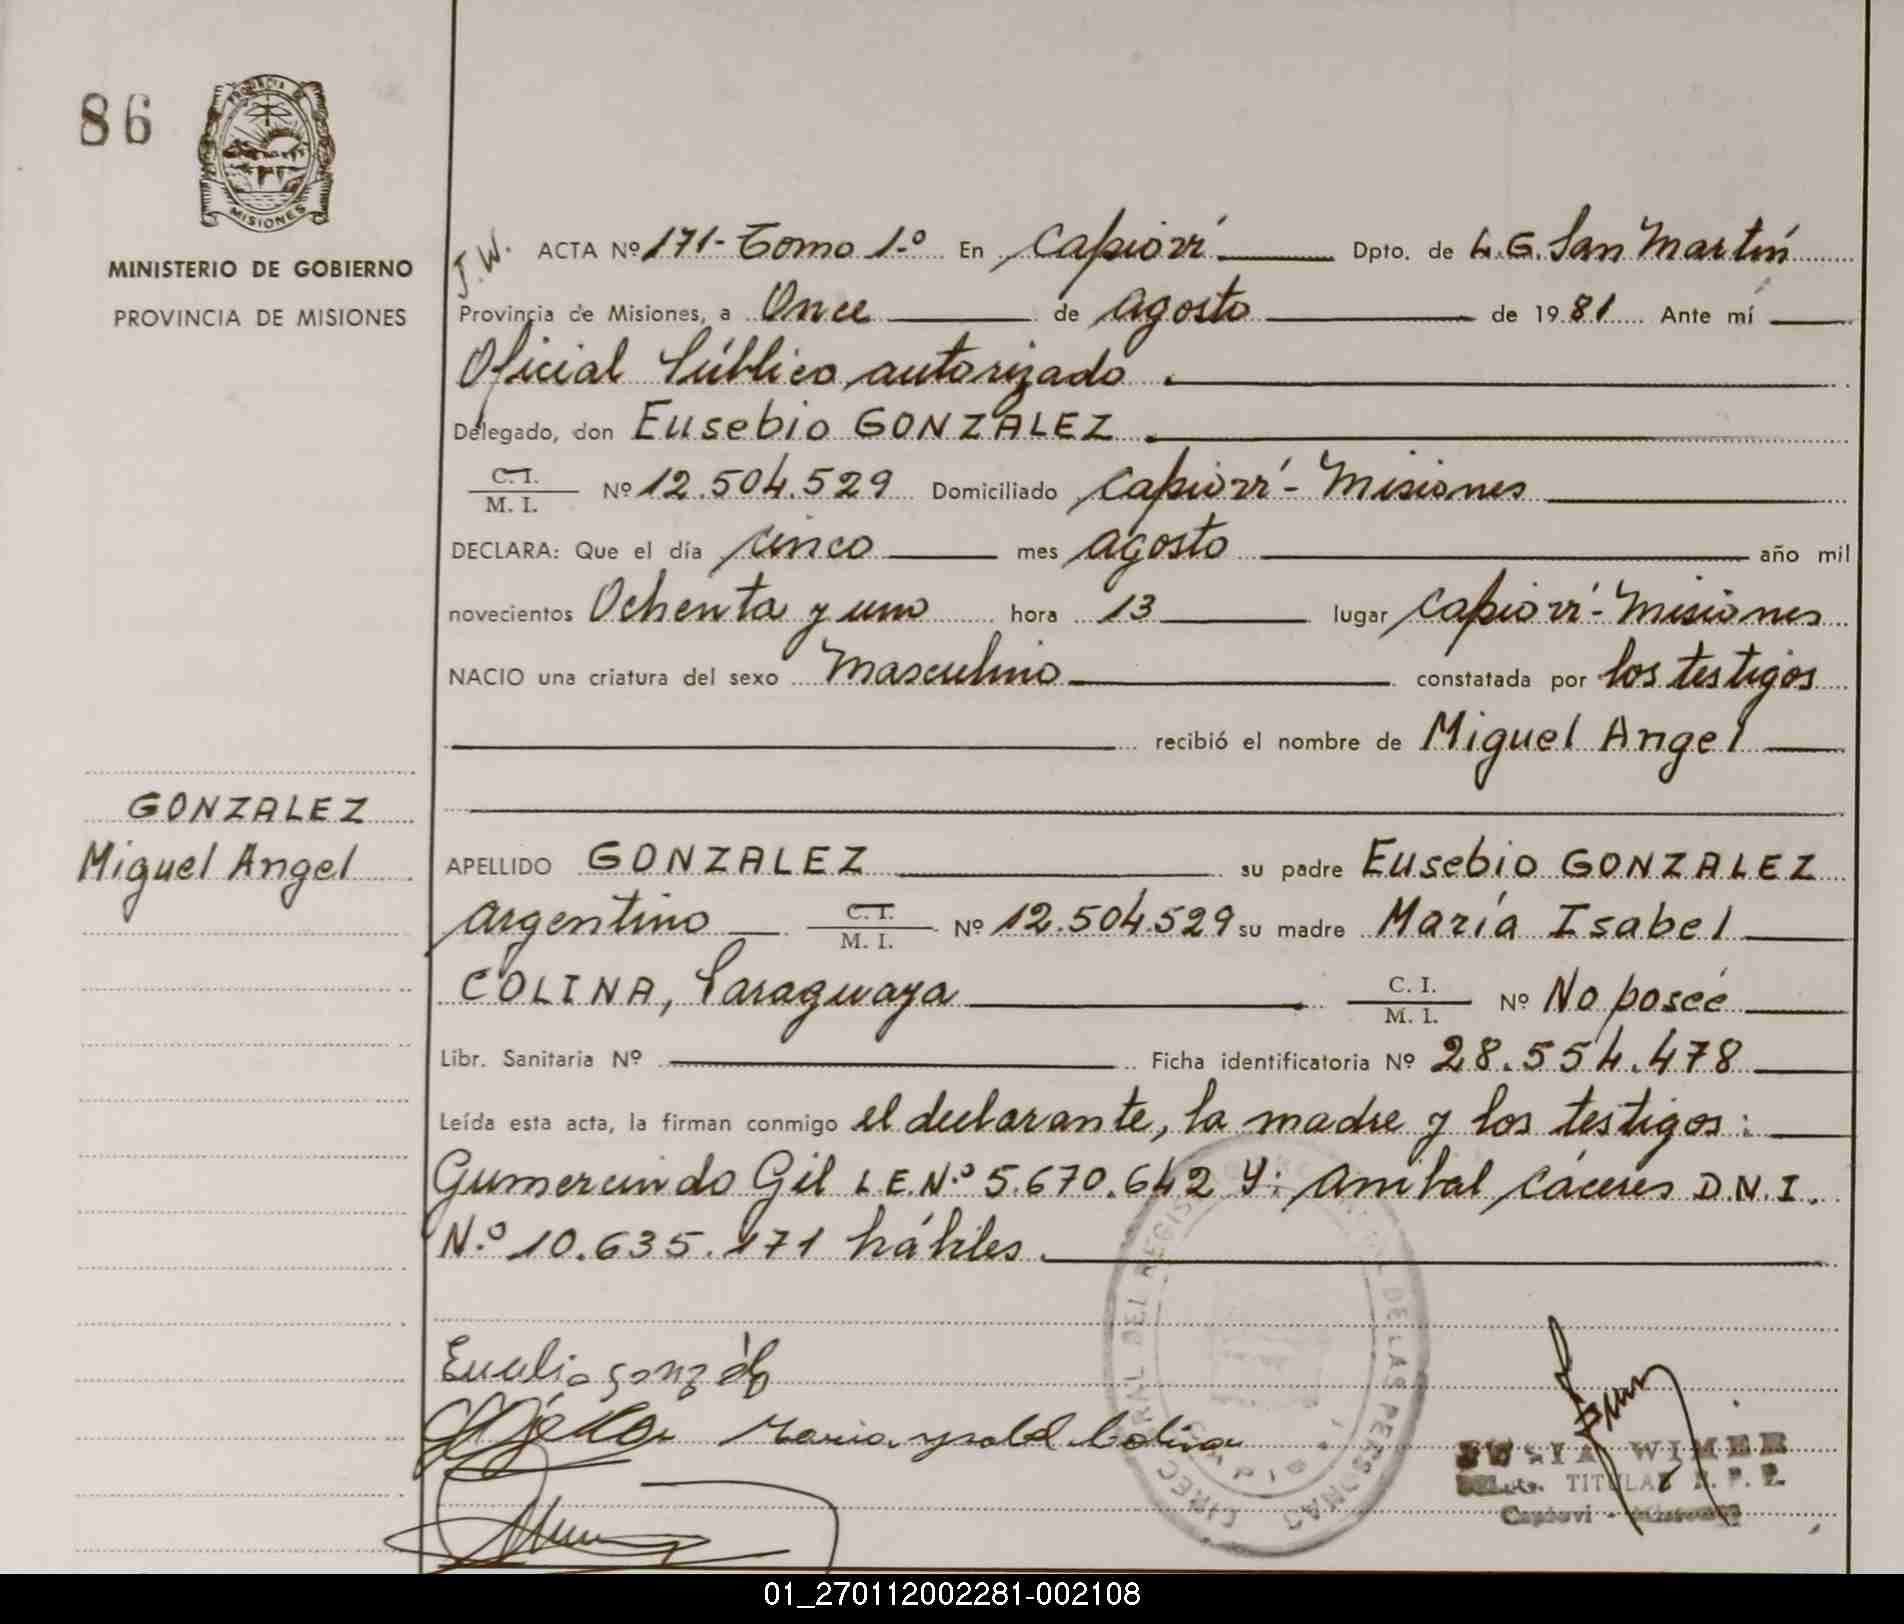 86
PROVINCIA DE
MISIONES
MINISTERIO DE GOBIERNO
PROVINCIA DE MISIONES
J.W. ACTA Nº 171- Tomo 1.º En Capioví Dpto. de L.G. San Martín
Provincia de Misiones, a Once de agosto de 1981 Ante mí
Oficial Público autorizado.
Delegado, don Eusebio GONZALEZ.
C.I. / M. I. Nº 12.504.529 Domiciliado Capioví- Misiones
DECLARA: Que el día cinco mes agosto año mil
novecientos Ochenta y uno hora 13 lugar Capioví- Misiones
NACIO una criatura del sexo Masculino constatada por los testigos
recibió el nombre de Miguel Angel
GONZALEZ
Miguel Angel
APELLIDO GONZALEZ su padre Eusebio GONZALEZ
argentino C.I. / M. I. Nº 12.504.529 su madre María Isabel
COLINA, Paraguaya C. I. / M. I. Nº No poseé
Libr. Sanitaria Nº Ficha identificatoria Nº 28.554.478
Leída esta acta, la firman conmigo el declarante, la madre y los testigos:
Gumercindo Gil L.E.N.º 5.670.642 Y: Anibal Cáceres D.N.I.
N.º 10.635.171 hábiles.
DEL REGIS DE LAS PERSONAS
Maria ysabel Colina
WIMER
TITULAR R. P. P.
Capiovi - Misiones
01_270112002281-002108